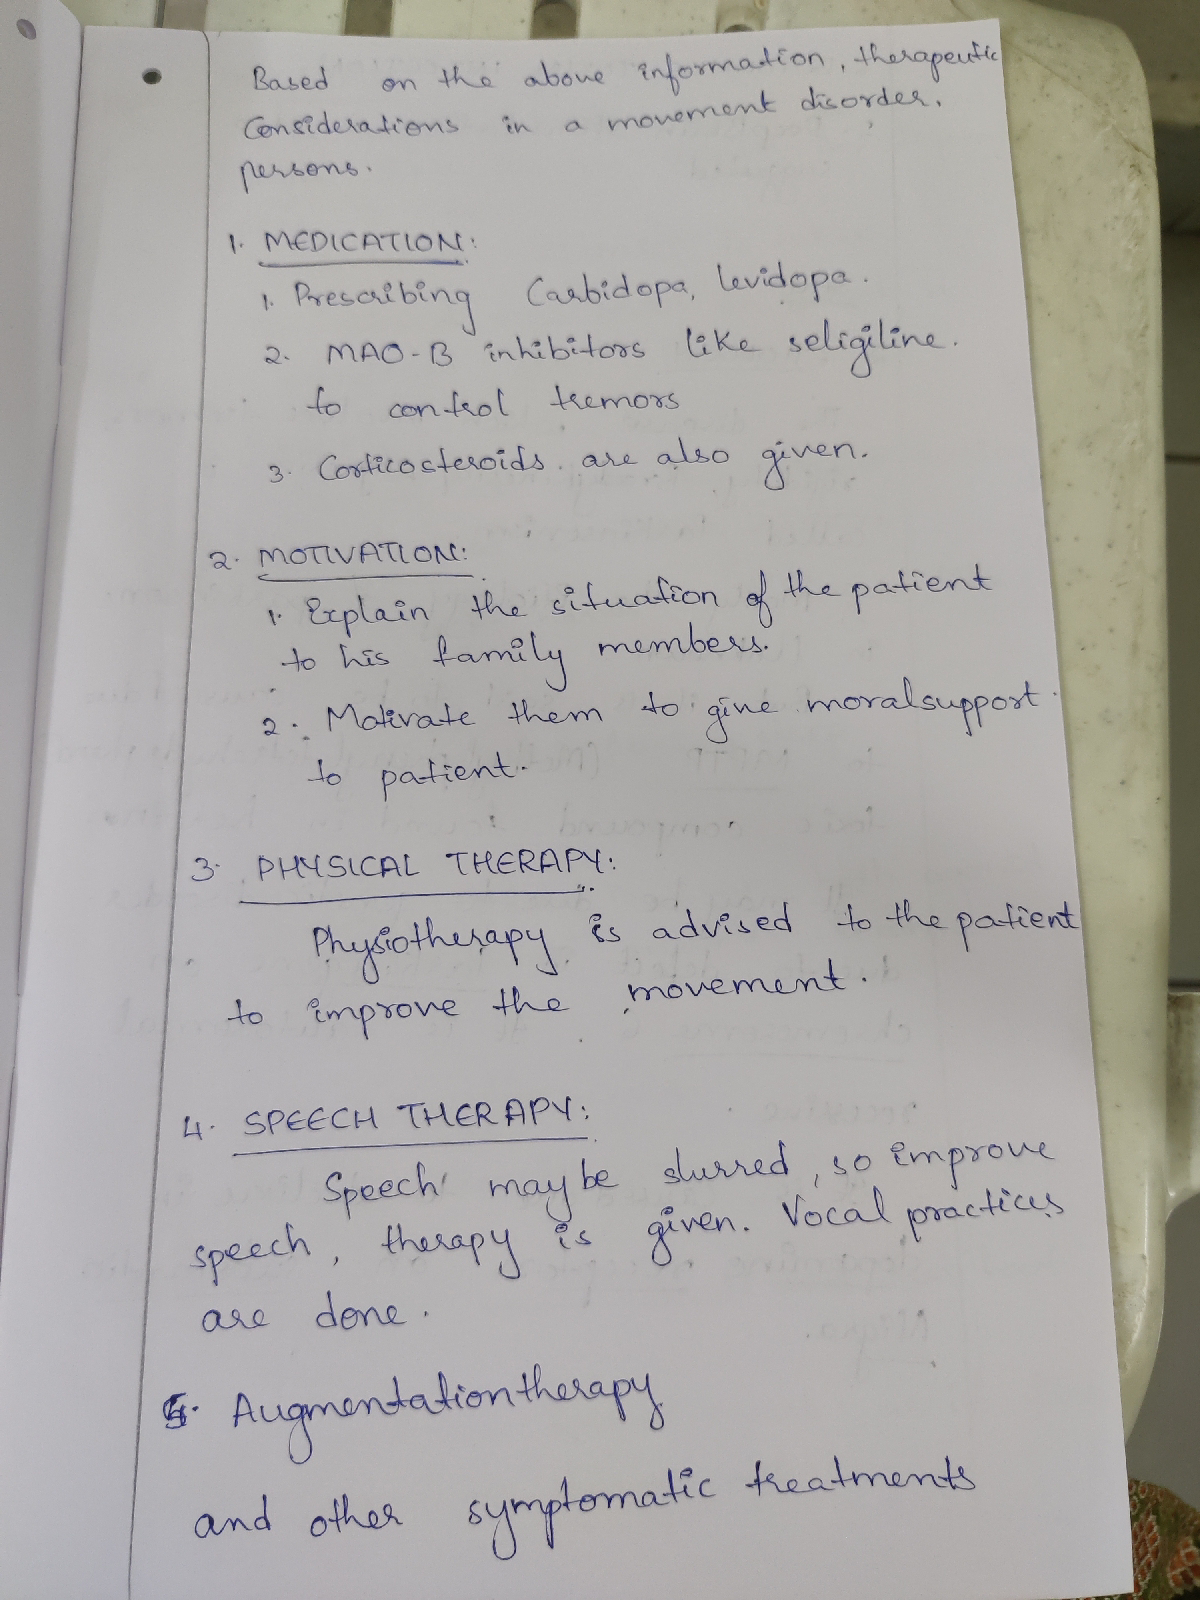 Based on the above information, therapeutic
Considerations in a movement disorder.
persons.
1. MEDICATION:
1. Prescribing Carbidopa, levidopa.
2. MAO-B inhibitors like seligiline.
to control tremors
3. Corticosteroids are also given.
2. MOTIVATION:
1. Explain the situation of the patient
to his family members.
2. Motivate them to give moralsupport
to patient.
3. PHYSICAL THERAPY:
Physiotherapy is advised to the patient
to improve the movement.
4. SPEECH THERAPY:
Speech may be slurred, so improve
speech, therapy is given. Vocal practices
are done.
5. Augmentationtherapy
and other symptomatic treatments